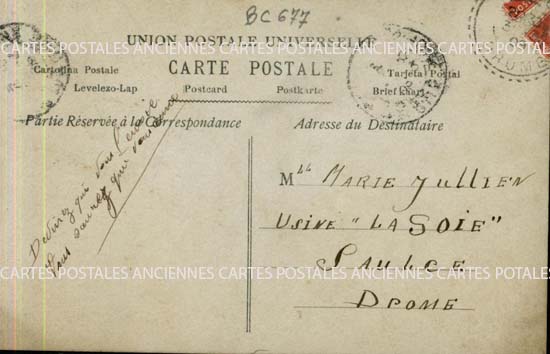 BC 677
UNION POSTALE UNIVERSELLE
CARTE POSTALE
Cartolina Postale
Tarjeta Postal
Levelezo-Lap
Postcard
Postkarte
Brief kaart
Partie Réservée à la Correspondance
Adresse du Destinataire
Devinez qui vous l'envoie
Vous saurez que vous
Mlle MARIE JULLIEN
USINE "LA SOIE"
SAULCE
DROME
CARTES POSTALES ANCIENNES CARTES POSTALES ANCIENNES CARTES POSTALES
CARTES POTALES ANCIENNES CARTES POTALES ANCIENNES CARTES POTALES